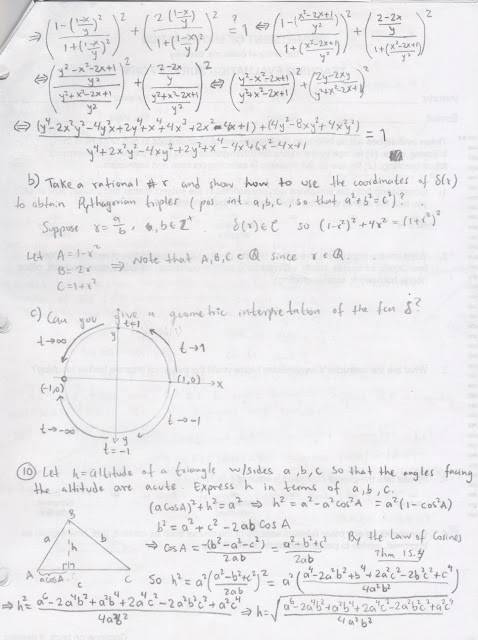 ⇒ ((1-((1-x)/y)^2)/(1+((1-x)/y)^2))^2 + ((2((1-x)/y))/(1+((1-x)/y)^2))^2 ?= 1 ⇔ ((1-((x^2-2x+1)/y^2))/(1+((x^2-2x+1)/y^2)))^2 + (((2-2x)/y)/(1+((x^2-2x+1)/y^2)))^2
⇔ (((y^2-x^2-2x+1)/y^2)/((y^2+x^2-2x+1)/y^2))^2 + (((2-2x)/y)/((y^2+x^2-2x+1)/y^2))^2 ⇔ ((y^2-x^2-2x+1)/(y^2+x^2-2x+1))^2 + ((2y-2xy)/(y^2+x^2-2x+1))^2
⇔ ((y^4-2x^2y^2-4y^2x+2y^2+x^4+4x^3+2x^2-4x+1)+(4y^2-8xy^2+4x^2y^2))/(y^4+2x^2y^2-4xy^2+2y^2+x^4-4x^3+6x^2-4x+1) = 1
b) Take a rational # r and show how to use the coordinates of δ(r)
to obtain Pythagorian triples (pos. int. a,b,c, so that a^2+b^2=c^2)?
Suppose r=a/b, a,b∈Z^+ δ(r)∈C so (1-r^2)^2+4r^2=(1+r^2)^2
Let A=1-r^2
B=2r ⇒ Note that A,B,C∈Q since r∈Q.
C=1+r^2
c) Can you give a geometric interpretation of the fcn δ?
t→1
y
t→∞
t→1
(-1,0)
(1,0)
→x
t→-∞
t→-1
y
t=-1
(10) Let h=altitude of a triangle w/sides a,b,c so that the angles facing
the altitude are acute. Express h in terms of a,b,c.
(acosA)^2+h^2=a^2 ⇒ h^2=a^2-a^2cos^2A = a^2(1-cos^2A)
b^2=a^2+c^2-2ab cos A
⇒ cosA = -(b^2-a^2-c^2)/2ab = (a^2-b^2+c^2)/2ab By the Law of Cosines
Thm 15.4
B
a
h
b
A
acosA
c
C
So h^2=a^2((a^2-b^2+c^2)/2ab)^2 = a^2((a^4-2a^2b^2+b^4+2a^2c^2-2b^2c^2+c^4)/4a^2b^2)
⇒ h^2=(a^6-2a^4b^2+a^2b^4+2a^4c^2-2a^2b^2c^2+a^2c^4)/4a^2b^2 ⇒ h=√((a^6-2a^4b^2+a^2b^4+2a^4c^2-2a^2b^2c^2+a^2c^4)/4a^2b^2)